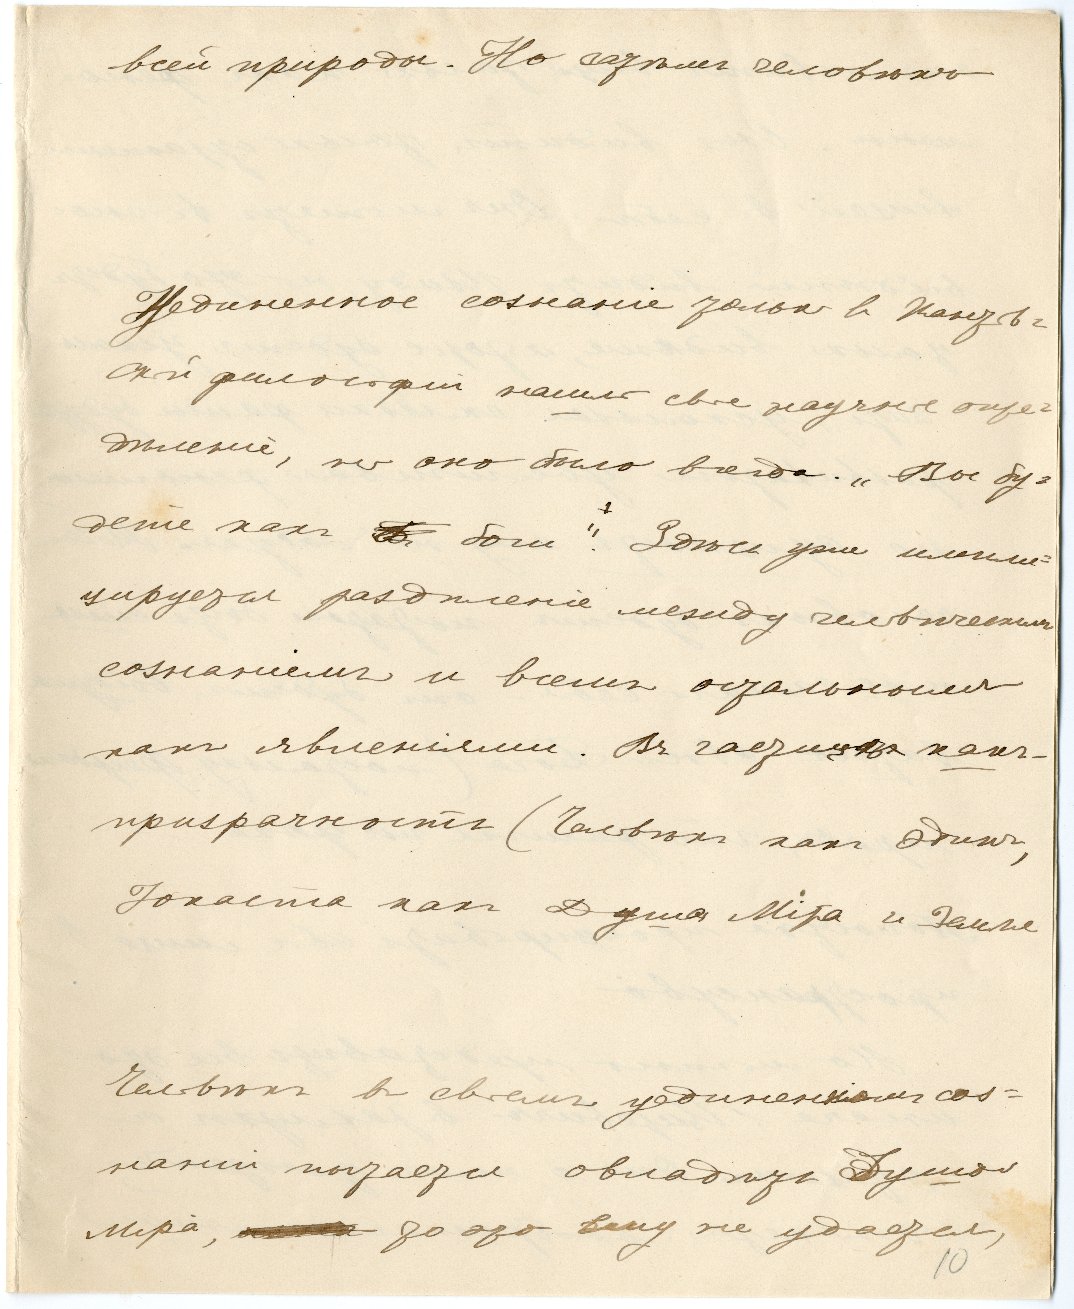 всей природы. Но затѣмъ человѣкъ
Уединенное сознаніе только в Кантов=
ской философіи нашло свое научное опре=
дѣленіе, но оно было всегда. „Вы бу=
дете какъ боги“. Здѣсь уже импли=
цируется раздѣленіе между человѣческимъ
сознаніемъ и всѣмъ остальнымъ
какъ явленіями. Въ какъ
призрачность (Человѣкъ какъ Эдипъ,
Іокаста какъ Душа Міра и Земле
Человѣкъ въ своемъ уединенномъ соз=
наніи пытается овладѣть Душой
Міра, то это ему не удается,
10